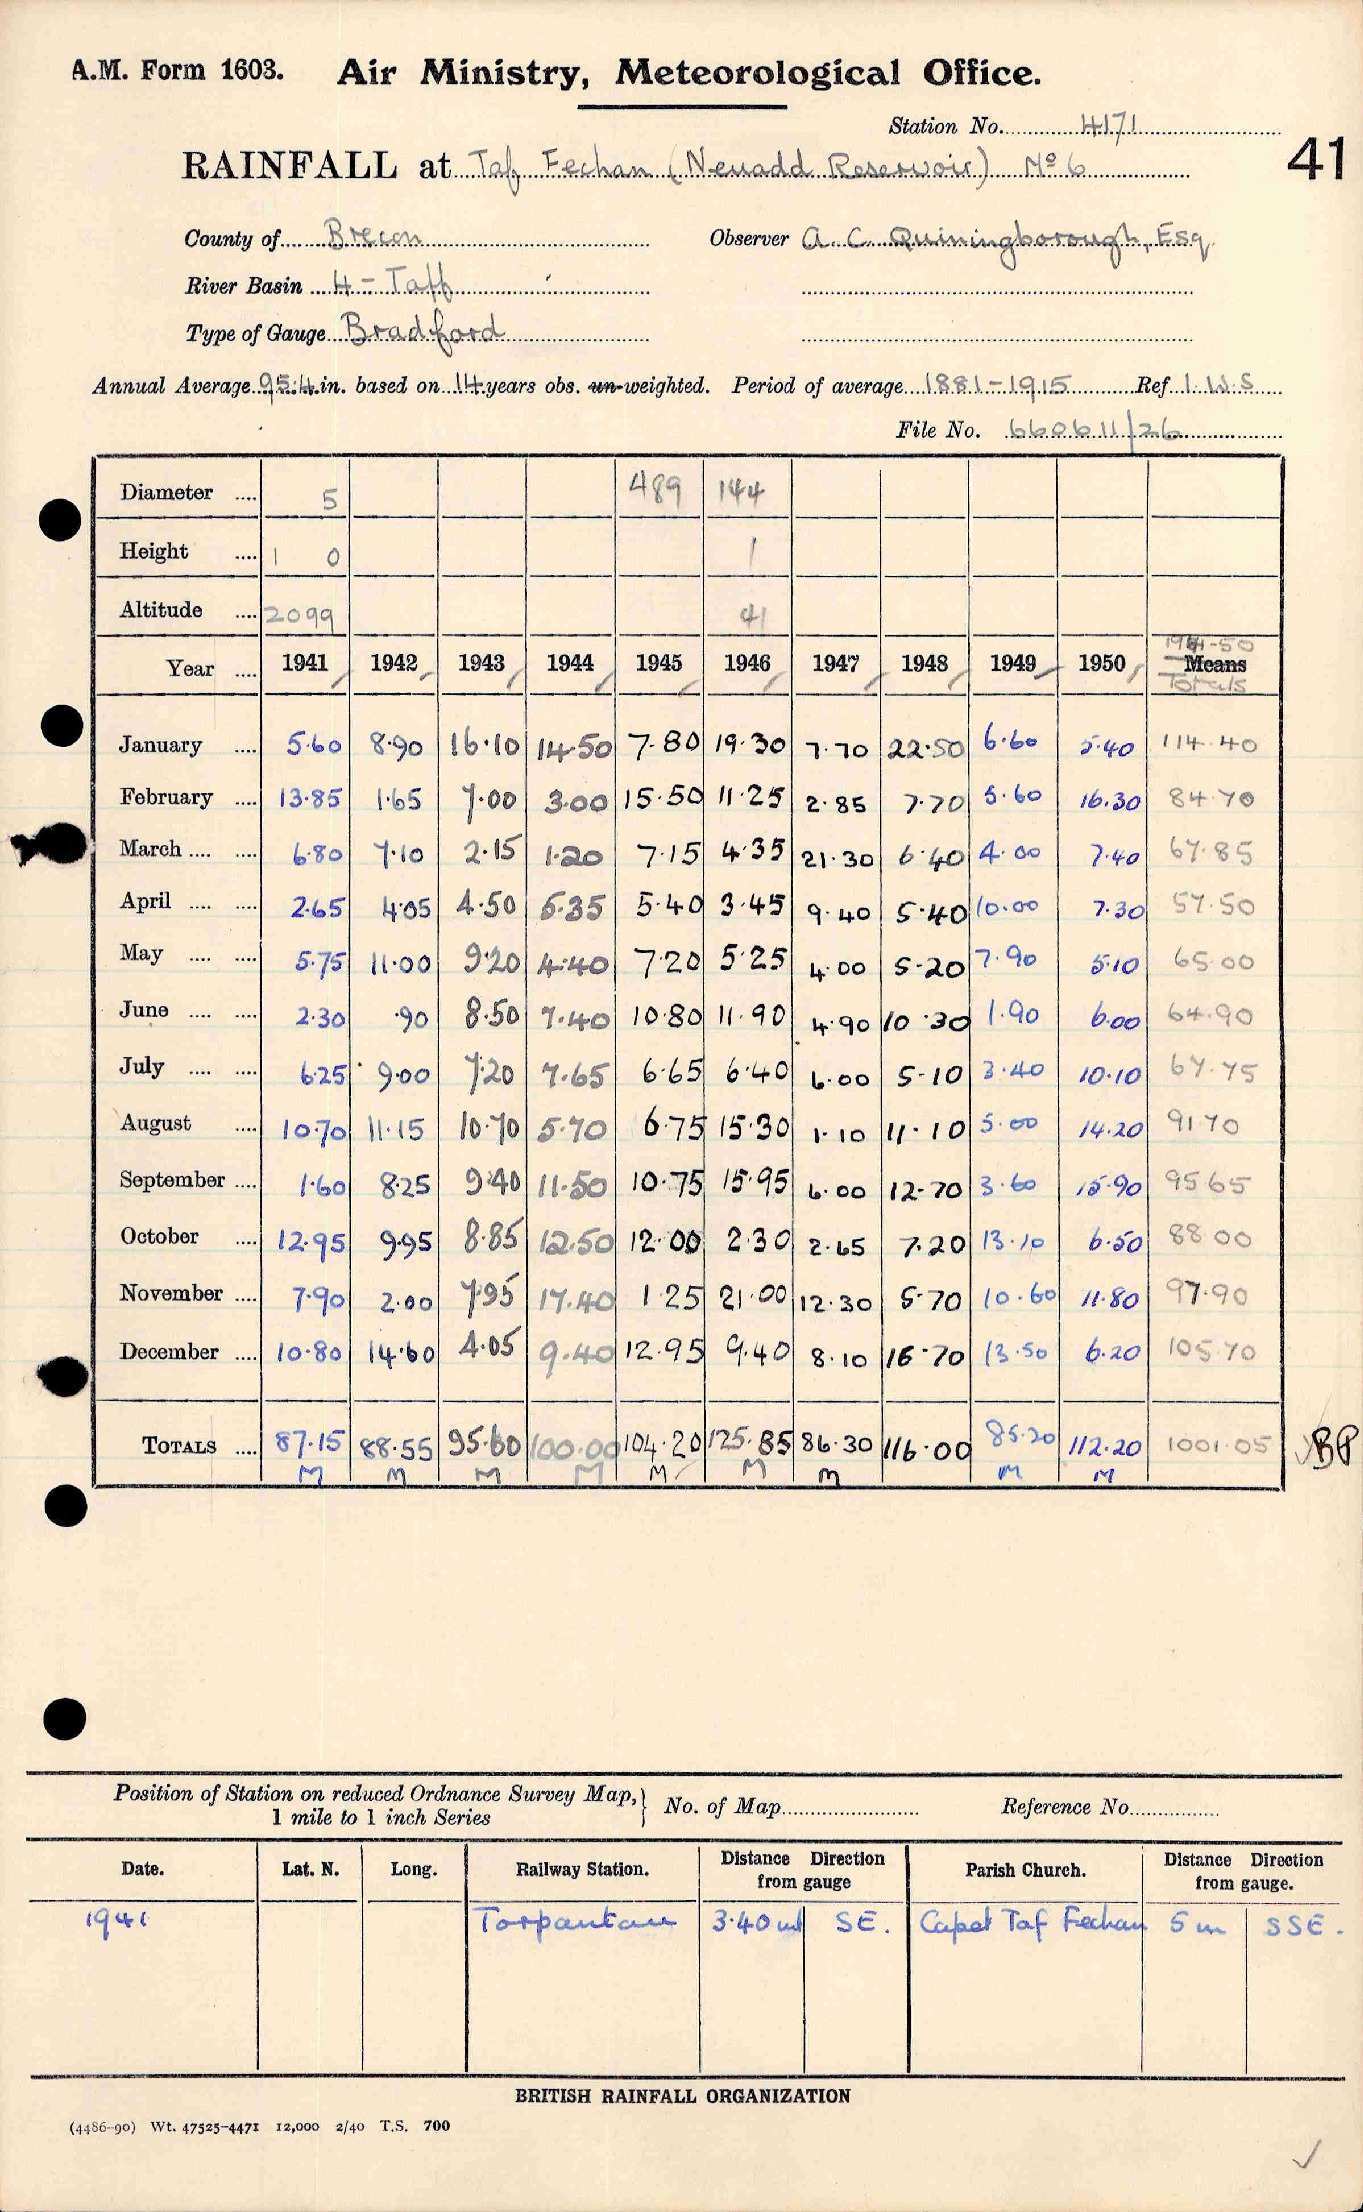 A.M. Form 1603. Air Ministry, Meteorological Office.
Station No. 4171
RAINFALL at Taf Fechan (Neuadd Reservoir) No 6 41
County of Brecon Observer A. C. Quiningborough, Esq.
River Basin 4 - Taff
Type of Gauge Bradford
Annual Average 95.4 in. based on 14 years obs. un-weighted. Period of average 1881-1915 Ref I.W.S
File No. 660611/26
Diameter .... 5 489 144
Height .... 1 0 1
Altitude .... 2099 41
1941-50
Year .... 1941 1942 1943 1944 1945 1946 1947 1948 1949 1950 Means
Totals
January .... 5.60 8.90 16.10 14.50 7.80 19.30 7.70 22.50 6.60 5.40 114.40
February .... 13.85 1.65 7.00 3.00 15.50 11.25 2.85 7.70 5.60 16.30 84.70
March .... .... 6.80 7.10 2.15 1.20 7.15 4.35 21.30 6.40 4.00 7.40 67.85
April .... .... 2.65 4.05 4.50 5.35 5.40 3.45 9.40 5.40 10.00 7.30 57.50
May .... .... 5.75 11.00 9.20 4.40 7.20 5.25 4.00 5.20 7.90 5.10 65.00
June .... .... 2.30 .90 8.50 7.40 10.80 11.90 4.90 10.30 1.90 6.00 64.90
July .... .... 6.25 9.00 7.20 7.65 6.65 6.40 6.00 5.10 3.40 10.10 67.75
August .... 10.70 11.15 10.70 5.70 6.75 15.30 1.10 11.10 5.00 14.20 91 70
September .... 1.60 8.25 9.40 11.50 10.75 15.95 6.00 12.70 3.60 15.90 95 65
October .... 12.95 9.95 8.85 12.50 12.00 2.30 2.65 7.20 13.10 6.50 88 00
November .... 7.90 2.00 7.95 17.40 1.25 21.00 12.30 5.70 10.60 11.80 97.90
December .... 10.80 14.60 4.05 9.40 12.95 9.40 8.10 16.70 13.50 6.20 105.70
TOTALS .... 87.15 88.55 95.60 100.00 104.20 125.85 86.30 116.00 85.20 112.20 1001.05 ✓BP
M M M M M M M M M
Position of Station on reduced Ordnance Survey Map, } No. of Map Reference No.
1 mile to 1 inch Series
Date. Lat. N. Long. Railway Station. Distance Direction from gauge Parish Church. Distance Direction from gauge.
1941 Torpantau 3.40 ml SE. Capel Taf Fechan 5 m SSE.
BRITISH RAINFALL ORGANIZATION
(4486-90) Wt. 47525-4471 12,000 2/40 T.S. 700
✓